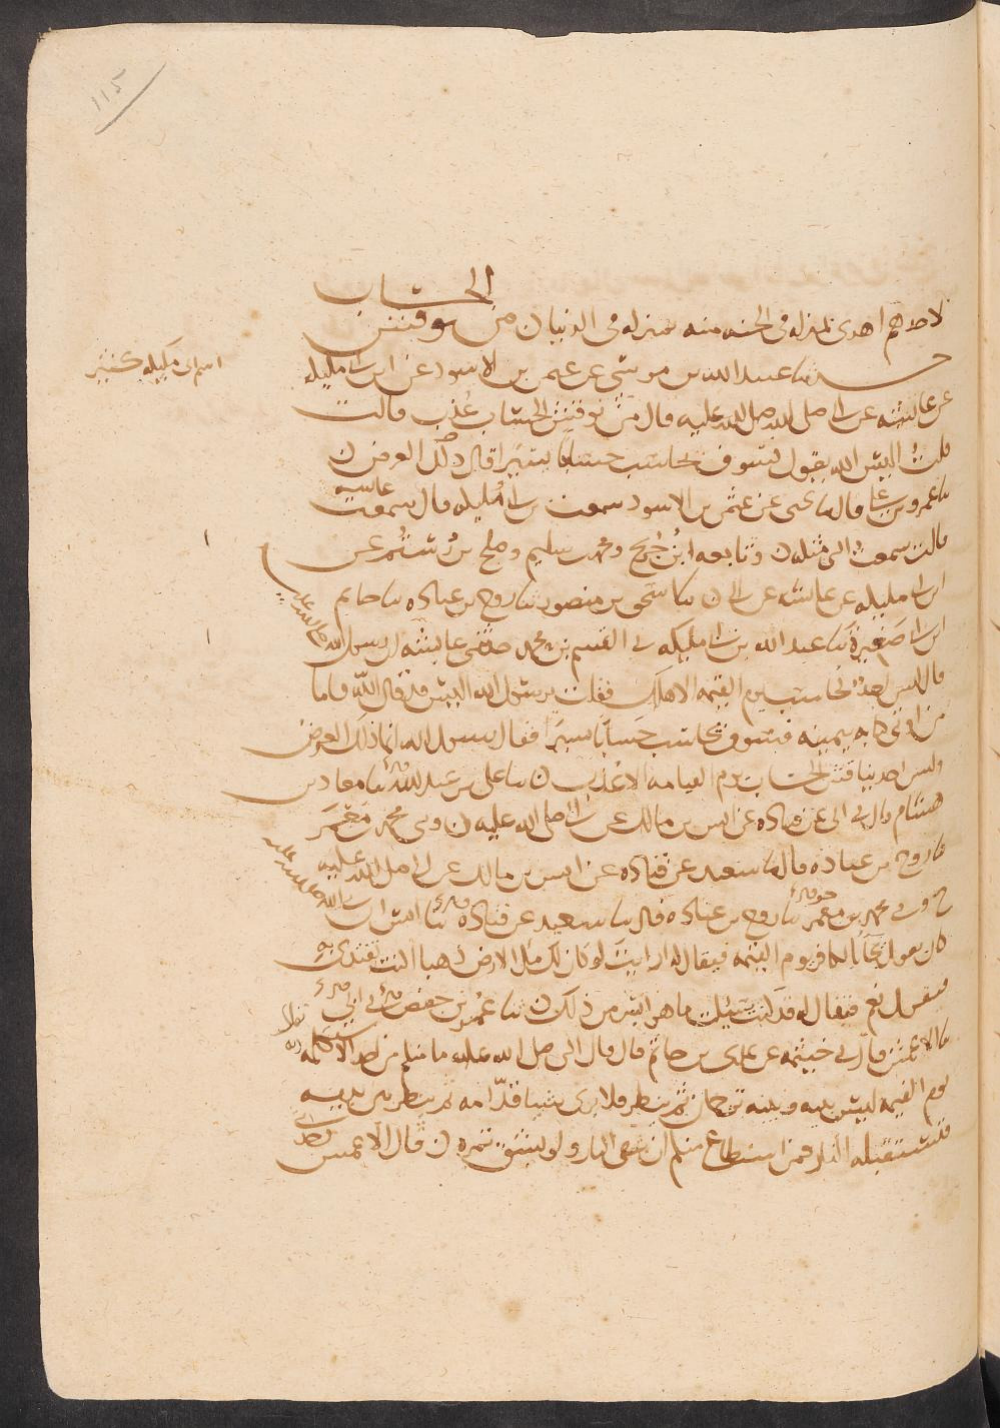 ١١٥
الحساب
لاحدهم اهدى بمنزله فى الجنه منه بمنزله فى الدنيا ن من نوقش
حدثنا عبيد الله بن موسى عن عثمن بن الاسود عن ابن ابى مليكه
اسم ابى مليكه
عن عائشه عن النبي صلى الله عليه قال من نوقش الحساب عذب قالت
قلت اليس الله يقول فسوف يحاسب حسابا يسيرا قال ذلك العرض ن
نا عمرو بن على قال نا يحيى عن عثمن بن الاسود سمعت بن ابى مليكه قال سمعت عايشه
قالت سمعت النبي مثله ن وتابعه ابن جريج ومحمد بن سليم وصلح بن رستم عن
ابن ابى مليكه عن عائشه عن النبي ن نا اسحق بن منصور نا روح بن عباده نا حاتم
ابن ابى صغيرة نا عبد الله بن ابى مليكه نى القسم بن محمد حدثتنى عايشه ان رسول الله صلى الله عليه
قال ليس احد يحاسب يوم القيمه الا هلك فقلت يرسول الله اليس قد قال الله فاما
من اوتى كتابه بيمينه فسوف يحاسب حسابا يسيرا فقال رسول الله انما ذلك العرض
وليس احد يناقش الحساب يوم القيامه الا عذب ن نا على بن عبد الله نا معاذ بن
هشام قال نى ابى عن قتاده عن انس بن مالك عن النبي صلى الله عليه ن ونى محمد بن معمر
نا روح بن عباده قال نا سعيد عن قتاده عن انس بن مالك عن النبي صلى الله عليه
ح ونى محمد بن معمر نا روح بن عباده قال نا سعيد عن قتاده نا انس ان نبى الله صلى الله عليه
كان يقول يجآ بالكافر يوم القيمه فيقال له ارايت لو كان لك مل الارض ذهبا اكنت تفتدى به
فيقول نعم فيقال له قد كنت سئلت ما هو ايسر من ذلك ن نا عمر بن حفص نى ابى
نا الاعمش قال نى خيثمه عن عدى بن حاتم قال قال النبي صلى الله عليه ما منكم من احد الا سيكلمه الله
يوم القيمه ليس بينه وبينه ترجمان ثم ينظر فلا يرى شيا قدامه ثم ينظر بين يديه
فتستقبله النار فمن استطاع منكم ان يتقى النار ولو بشق تمره ن قال الاعمش